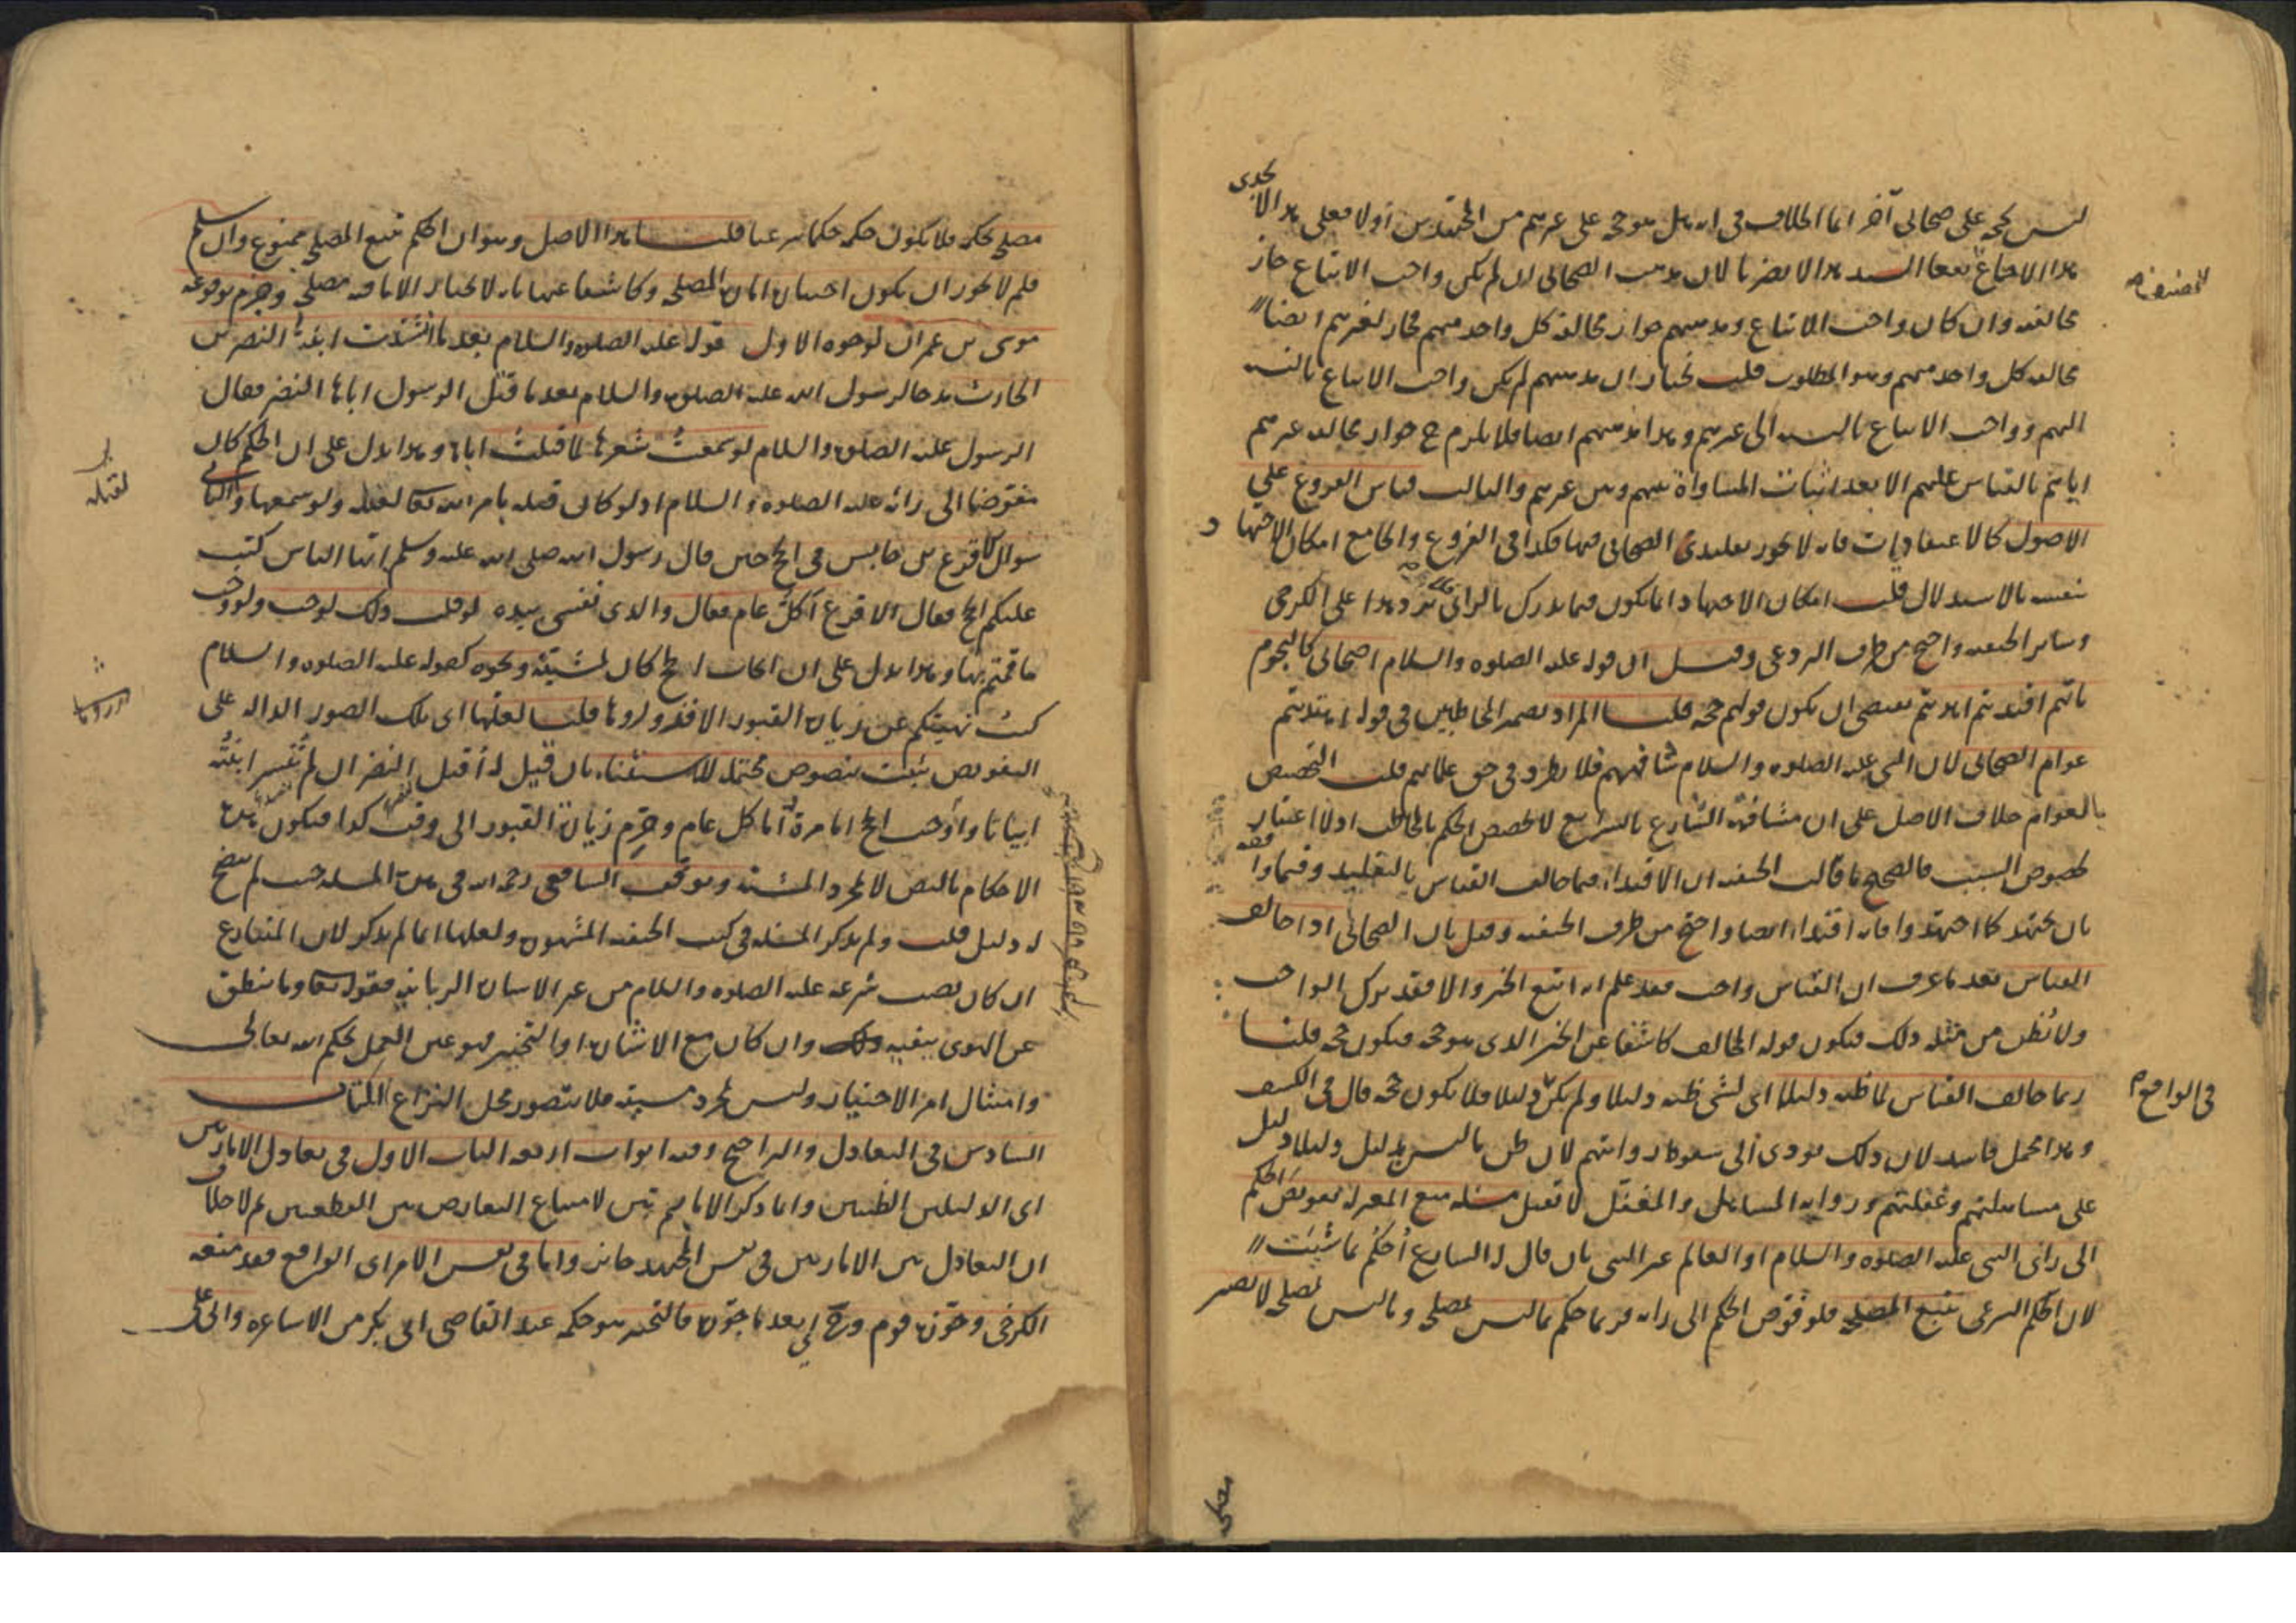 ليس بحجة على صحابي آخر انما الخلاف في انه هل هو حجة على غيرهم من المجتهدين اولا فعلى هذا لا يجدى
هذا الاجماع نفعا السند هذا لا يضرنا لان مذهب الصحابي ان لم يكن واجب الاتباع جاز
مخالفته وان كان واجب الاتباع ومذهبهم جواز مخالفة كل واحد منهم فجاز لغيرهم ايضا
مخالفة كل واحد منهم وهو المطلوب قلت نختار ان مذهبهم لم يكن واجب الاتباع بالنسبة
اليهم وواجب الاتباع بالنسبة الى غيرهم وهذا مذهبهم ايضا فلا يلزم ح جواز مخالفة غيرهم
اياهم بالقياس عليهم الا بعد اثبات المساواة بينهم وبين غيرهم والثالث قياس الفروع على
الاصول كالاعتقاديات فانه لا يجوز تقليد الصحابي فيها فكذا في الفروع والجامع امكان الاجتهاد
بنفسه بالاستدلال قلت امكان الاجتهاد انما يكون فيما يدرك بالراي وهذا على الكرخي
وسائر الحنفية واحتج من طرف البردعي وقيل ان قوله عليه الصلوة والسلام اصحابي كالنجوم
بايهم اقتديتم اهتديتم يقتضي ان يكون قولهم حجة قلنا المراد بضمير المخاطبين في قوله اهتديتم
عوام الصحابي لان النبي عليه الصلوة والسلام شافههم فلا يطرد في حق علمائهم قلت التخصيص
بالعوام خلاف الاصل على ان مشافهة الشارع بالشرايع لا تخصص الحكم بالمخاطب اولا اعتبار
لخصوص السبب فالصحيح ما قالت الحنفية ان الاقتداء فيما خالف القياس بالتقليد وفيما وافقه
بان يجتهد كما اجتهدوا فانه اقتداء ايضا واحتج من طرف الحنفية وقيل بان الصحابي اذا خالف
القياس بعد ما عرف ان القياس واجب فقد علم انه اتبع الخبر والا فقد ترك الواجب
ولا يُظن من مثله ذلك فيكون قوله المخالف كاشفا عن الخبر الذي هو حجة فيكون حجة قلنا
ربما خالف القياس لما ظنه دليلا اي لشئ ظنه دليلا ولم يكن دليلا فلا يكون حجة قال في الكشف
وهذا محمل فاسد لان ذلك يؤدي الى سقوط روايتهم لان ظن ما ليس بدليل دليلا دليل
على مساهلتهم وغفلتهم ورواية المساهل والمغفل لا تقبل مسئلة منع المعتزلة تفويض الحكم
الى راي النبي عليه الصلوة والسلام او العالم غير النبي بان قال له الشارع اُحكُم بما شِئتَ
لان الحكم الشرعي يتبع المصلحة فلو فوّض الحكم الى رايه فربما حكم بما ليس بمصلحة وما ليس بمصلحة لا يصير
في الواقع
مصلحة
مصلحة بحكمه فلا يكون حكمه حكما شرعيا قلنا هذا الاصل وهو ان الحكم يتبع المصلحة ممنوع وان سلم
فلم لا يجوز ان يكون اختياره امارة المصلحة وكاشفا عنها بانه لا يختار الا ما فيه مصلحة وجزم بوقوعه
موسى بن عمران لوجوه الاول قوله عليه الصلوة والسلام بعد ما انشدت ابنة النضر بن
الحارث مدحا لرسول الله عليه الصلوة والسلام بعد ما قتل الرسول اباها النضر فقال
الرسول عليه الصلوة والسلام لو سمعتُ شعرها لما قتلتُ اباها وهذا يدل على ان الحكم كان
مفوضا الى رايه عليه الصلوة والسلام اذ لو كان قتله بامر الله تعالى لقتله ولو سمعها والثاني
سوال الاقرع بن حابس في الحج حين قال رسول الله صلى الله عليه وسلم ايها الناس كتب
عليكم الحج فقال الاقرع أكلّ عام فقال والذي نفسي بيده لو قلت ذلك لوجب ولو وجب
ما قمتم بها وهذا يدل على ان ايجاب الحج كان لمشيته ونحوه كقوله عليه الصلوة والسلام
كنت نهيتكم عن زيارة القبور الا فزوروها قلنا لعلها اي تلك الصور الدالة على
التفويض ثبتت بنصوص محتملة للاستثناء بان قيل له أقتل النضر ان لم تُنشر ابنتُه
ابياتا وأوجب الحج اما مرة أما كل عام وحَرِّم زيارة القبور الى وقت كذا فيكون هذه
الاحكام بالنص لا لمجرد المشية وتوقف الشافعي رحمه الله في هذه المسئلة حيث لم يتضح
له دليل قلت ولم يذكر المسئلة في كتب الحنفية المشهورة ولعلها انما لم يذكر لان المتنازع
ان كان نصب شرعه عليه الصلوة والسلام من غير الاسارة الربانية فقوله تعالى وما ينطق
عن الهوى ينفيه وان كان مع الاشارة او التخيير فهو عين العمل بحكم الله تعالى
وامتثال امر الاختيار وليس لمجرد مشيته فلا يتصور محل النزاع الكتاب
السادس في التعادل والتراجيح وفيه ابواب اربعة الباب الاول في تعادل الامارتين
اي الدليلين الظنيين وانما ذكر الامارتين لامتناع التعارض بين القطعيين ثم لا خلاف
ان التعادل بين الامارتين في نفس المجتهد جايز واما في نفس الامر اي الواقع فقد منعه
الكرخي وجوّزه قوم وح اي بعد ما جوّزه فالتخيير هو حكمه عند القاضي ابي بكر من الاشاعرة وابي علي